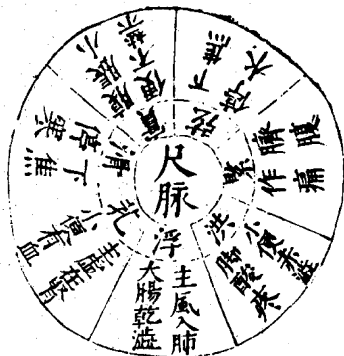 尺脉
浮
主風入肺
大腸乾澁
芤
主虛在腎
小便有血
滑
下焦
停寒
實
腹脹小
便不禁
下焦
停水
緊
臍腹
作痛
洪
小便赤澁
脚酸疼